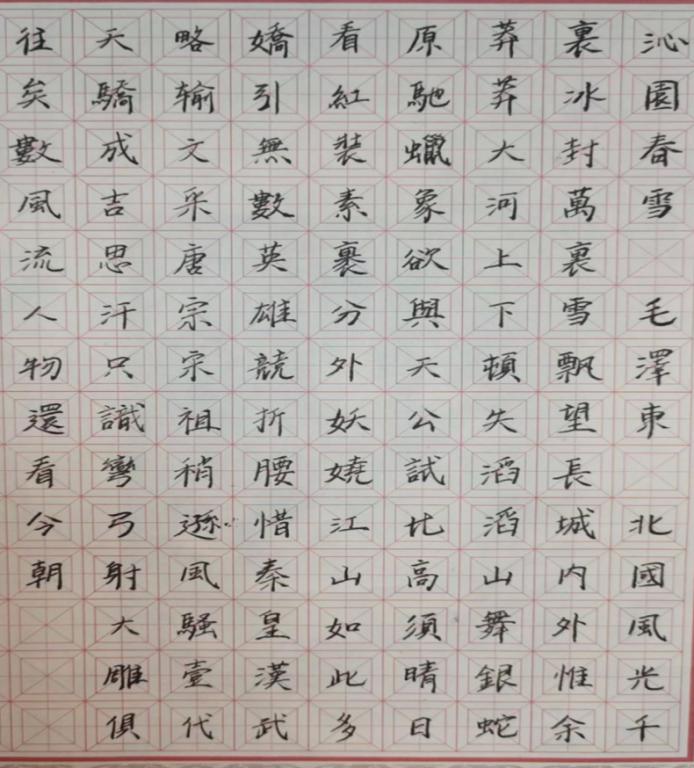 沁園春雪 毛澤東 北國風光千
裏冰封萬裏雪飄望長城内外惟余
莽莽大河上下頓失滔滔山舞銀蛇
原馳蠟象欲與天公試比高須晴日
看紅裝素裹分外妖嬈江山如此多
嬌引無數英雄競折腰惜秦皇漢武
略输文采唐宗宋祖稍遜風騷壹代
天驕成吉思汗只識彎弓射大雕俱
往矣數風流人物還看今朝